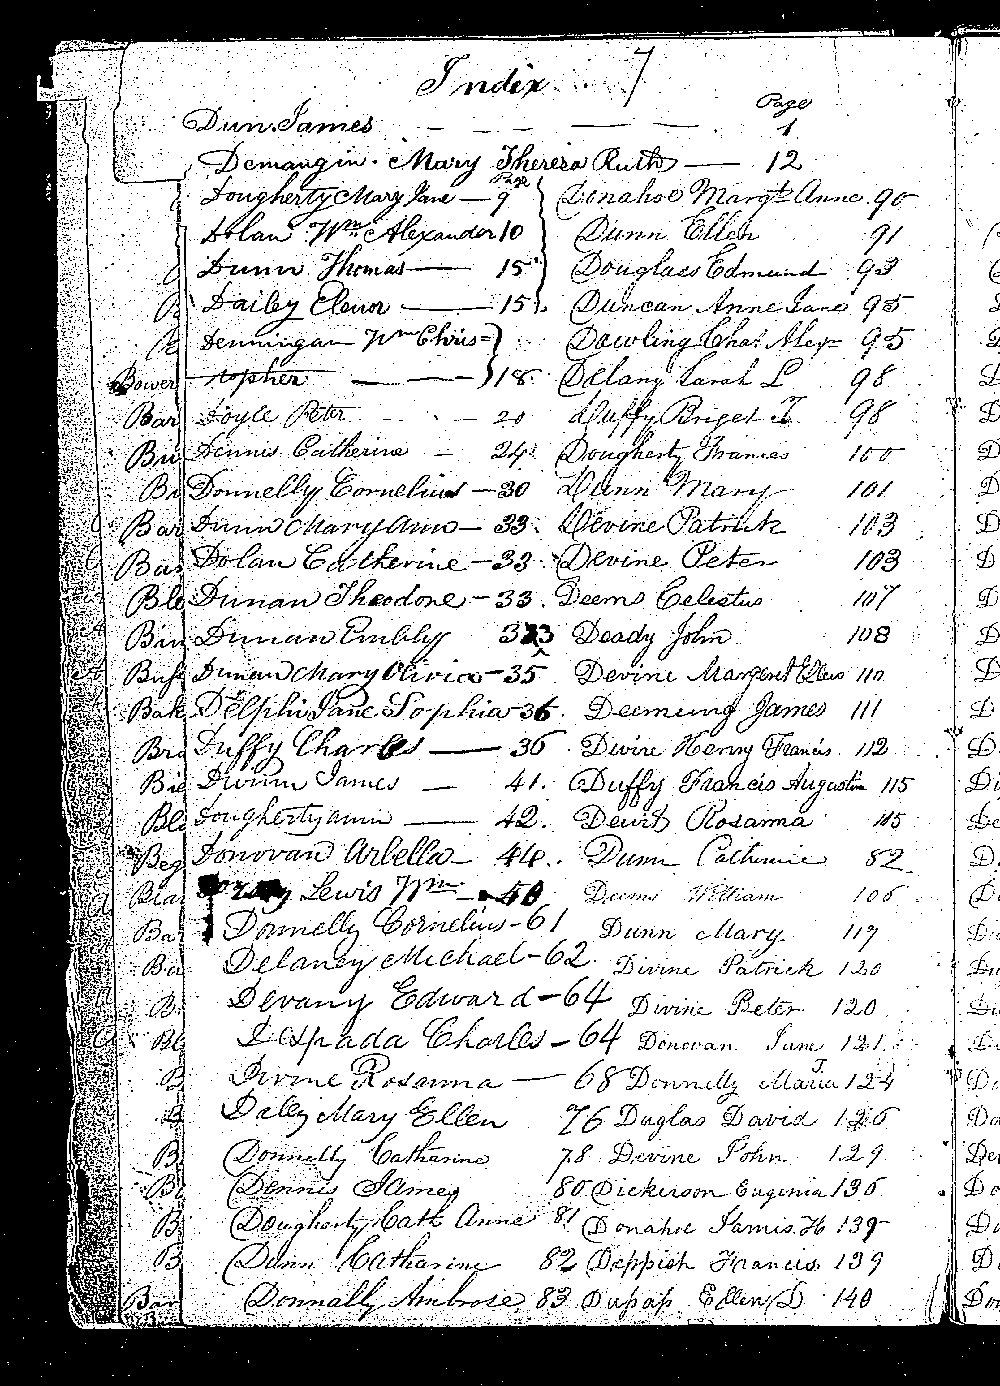 Index 7
Page
Dun James — — — — 1
Demangin Mary Theresa Ruth — 12
Page
Dougherty Mary Jane — 9
Dolan Wm Alexander 10
Dunn Thomas — 15
Dailey Elenor — 15
Dennigan Wm Chris=
topher — — 18
Doyle Peter 20
Dennis Catherine — 24
Donnelly Cornelius — 30
Dunn Mary Ann — 33
Dolan Catherine — 33
Dunan Theodore — 33
Dunan Embly 33
Dunan Mary Olivia — 35
Delphi Jane Sophia 36
Duffy Charles — 36
Divinn James — 41
Dougherty Ann — 42
Donovan Arbella — 44
Lewis Wm —
Donnelly Cornelius - 61
Delaney Michael - 62
Devany Edward - 64
Despada Charles - 64
Divine Rosanna — 68
Daley Mary Ellen 76
Donnelly Catharine 78
Dennis James 80
Dougherty Cath Anne 81
Dunn Catharine 82
Donnally Ambrose 83
Donahoe Margt Anne 90
Dunn Ellen 91
Douglass Edmund 93
Duncan Anne Jane 95
Dowling Chas Alex 95
Delany Sarah L 98
Duffy Briget T 98
Dougherty Frances 100
Dunn Mary 101
Devine Patrick 103
Devine Peter 103
Deems Celestus 107
Deady John 108
Devine Margaret Ellen 110
Deemeing James 111
Divine Henry Francis 112
Duffy Francis Augustin 115
Dewit Rosanna 115
Dunn Catherine 82
Deems William 106
Dunn Mary 119
Divine Patrick 120
Divine Peter 120
Donovan Jane 121
Donnelly Maria T. 124
Duglas David 126
Devine John 129
Dickerson Eugenia 136
Donahoe James H 139
Deppish Francis 139
Dupap Ellen D 140
Bower
Bar
Bar
Bak
Beg
Bar